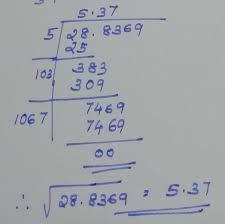 5.37
5 28.8369
25
103 383
309
1067 7469
7469
00
∴ √28.8369 = 5.37